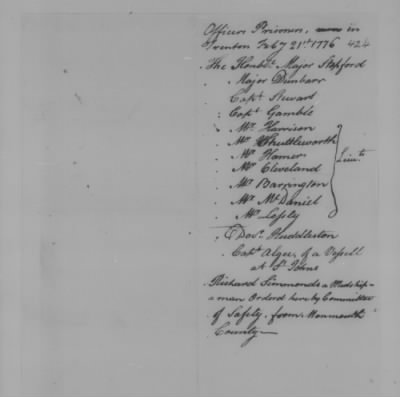 Officers Prisoners, now in
Trenton Feby 21st 1776 424
The Honble. Major Stopford
Major Dunbarr
Capt Stewart
Capt Gamble
Mr Harrison
Mr Shuttleworth
Mr Hamer
Mr Cleveland Lieuts
Mr Barrington
Mr McDaniel
Mr
Docr. Huddleston
Capt Algeo, of a Vessell
at St Johns
Richard Simmonds a Midship=
=man Orderd here by Committee
of Safety, from Monmouth
County